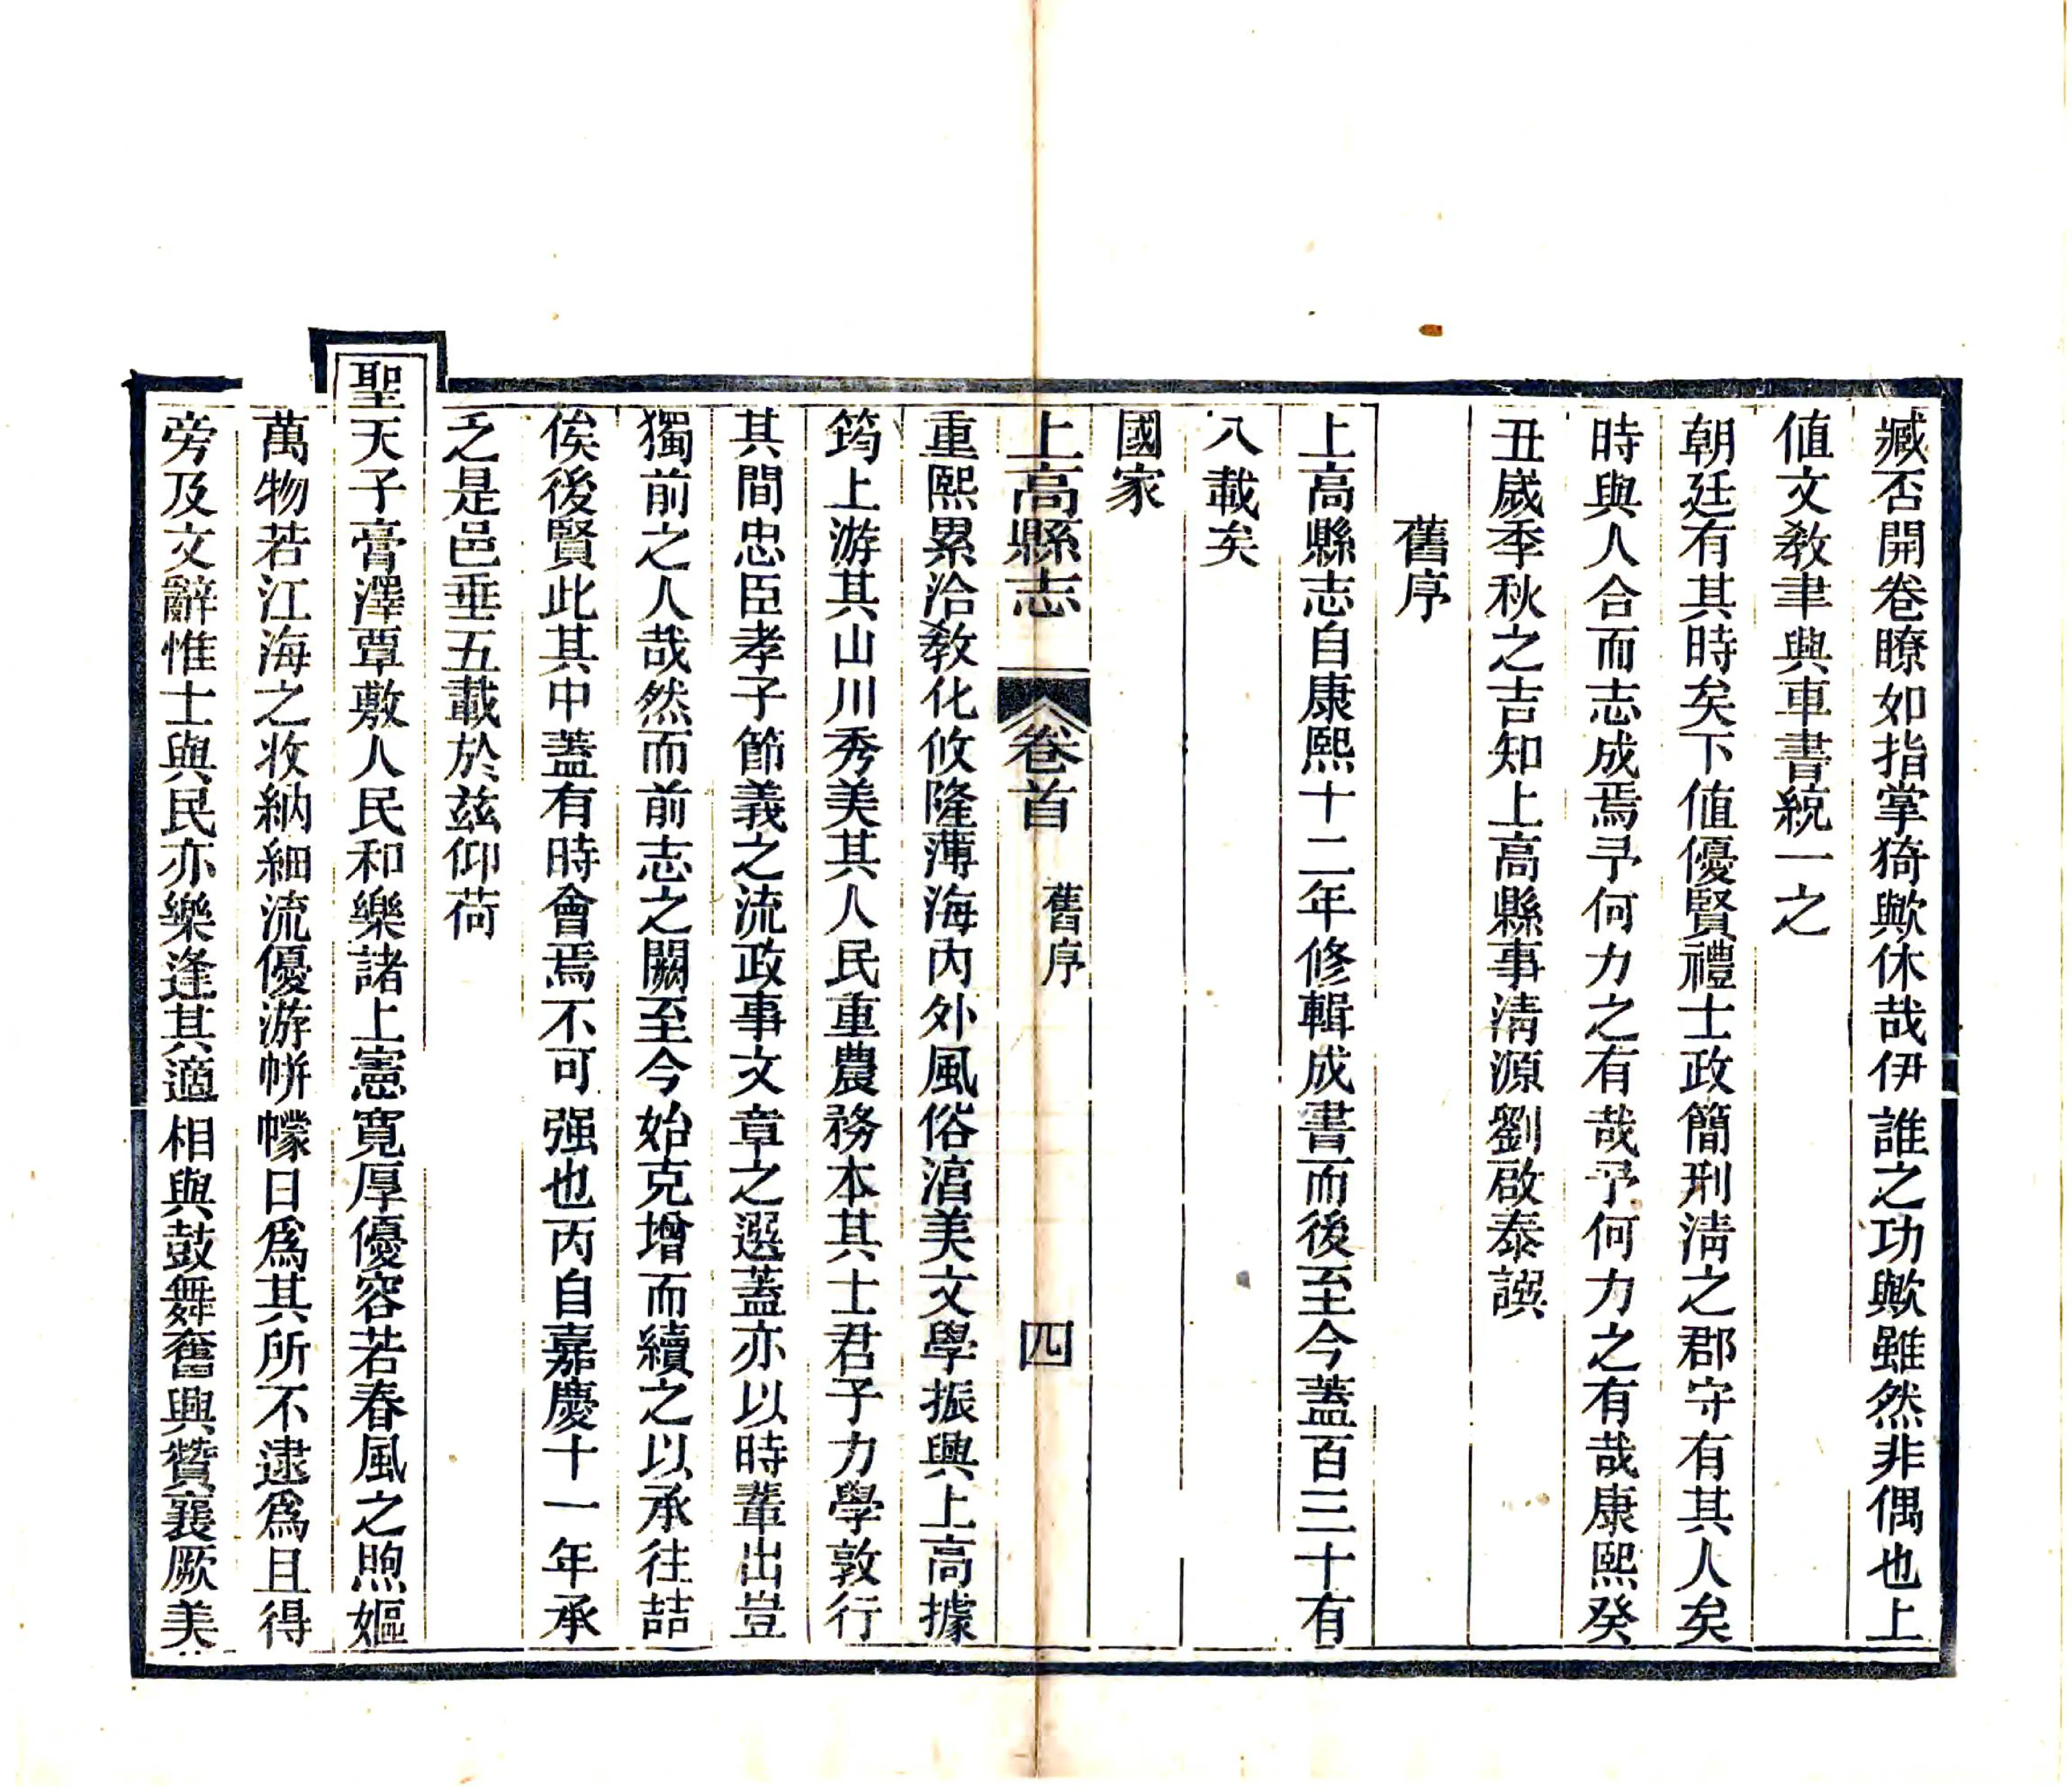 臧否開卷瞭如指掌猗歟休哉伊誰之功歟雖然非偶也上
値文敎聿興車書統一之
朝廷有其時矣下値優賢禮士政簡刑淸之郡守有其人矣
時與人合而志成焉予何力之有哉予何力之有哉康熙癸
丑嵗季秋之吉知上高縣事淸源劉啟泰譔
舊序
上高縣志自康熙十二年修輯成書而後至今蓋百三十有
八載矣
國家
上高縣志
卷首
舊序
四
重熙累洽敎化攸隆薄海內外風俗湻美文學振興上高據
筠上游其山川秀美其人民重農務本其士君子力學敦行
其間忠臣孝子節義之流政事文章之選蓋亦以時輩出豈
獨前之人哉然而前志之闕至今始克增而續之以承往喆
俟後賢此其中蓋有時會焉不可强也丙自嘉慶十一年承
乏是邑垂五載於茲仰荷
聖天子膏澤覃敷人民和樂諸上憲寬厚優容若春風之煦嫗
萬物若江海之收納細流優游帡幪日爲其所不逮爲且得
旁及文辭惟士與民亦樂逢其適相與鼓舞奮興贊襄厥美